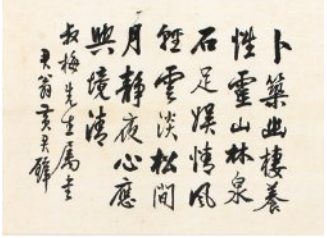 卜築幽棲養
性靈山林泉
石足娛情風
輕雲淡松間
月靜夜心應
與境清
叔梅先生屬書
君翁黃君璧